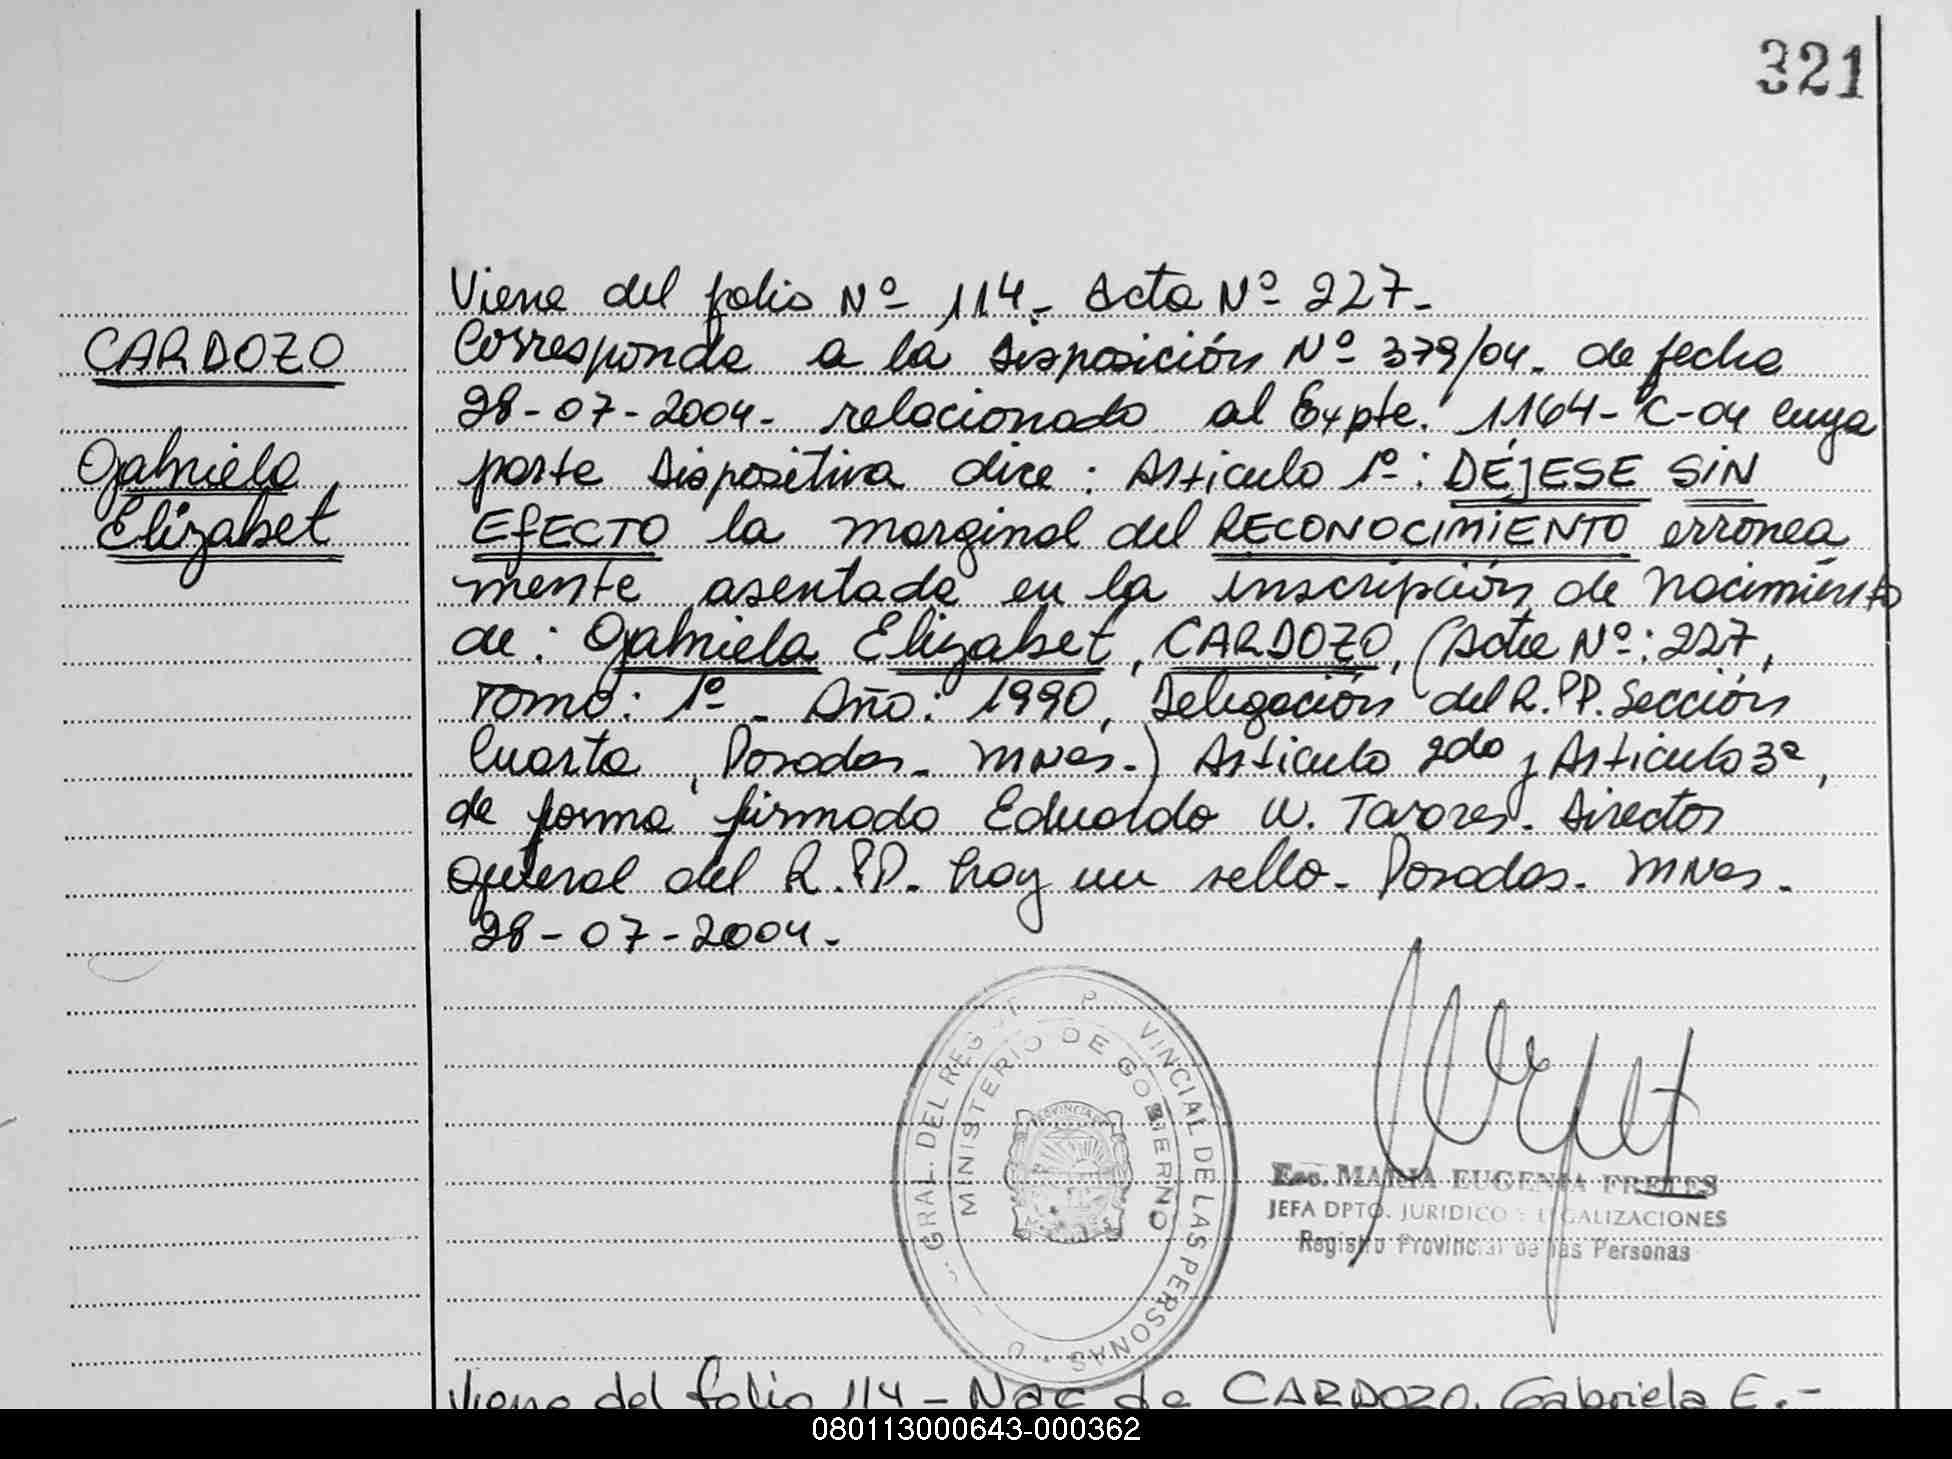 321
Viene del folio Nº 114- Acta Nº 227-
CARDOZO
Corresponde a la Disposición Nº 379/04- de fecha
28-07-2004- relacionado al Expte. 1164-C-04 cuya
Gabriela
Elizabet
parte Dispositiva dice: Articulo 1º: DÉJESE SIN
EFECTO la marginal del RECONOCIMIENTO erronea
mente asentada en la inscripción de Nacimiento
de: Gabriela Elizabet, CARDOZO, (Acta Nº: 227,
Tomo: 1º- Año: 1990, Delegación del R.PP. Sección
Cuarta, Posadas- Mnes.-) Articulo 2do y Articulo 3º,
de forma firmado Eduardo W. Tavares- Director
General del R.PP. hay un sello- Posadas- Mnes-
28-07-2004-
GRAL. DEL REG VINCIAL DE LAS PERSONAS
MINISTERIO DE GOBIERNO
PROVINCIA DE
Esc. MARIA EUGENIA FRETES
JEFA DPTO. JURIDICO LEGALIZACIONES
Registro Provincial de las Personas
Viene del folio 114- Nac de CARDOZO, Gabriela E.-
080113000643-000362